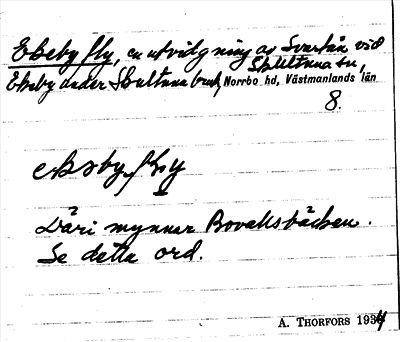 Ekeby fly, en utvidgning av Svartån vid
Ekeby under Skultuna bruk, Skultuna sn, Norrbo hd, Västmanlands län
8.
Däri mynnar Bovallsbäcken.
Se detta ord.
A. THORFORS 1934